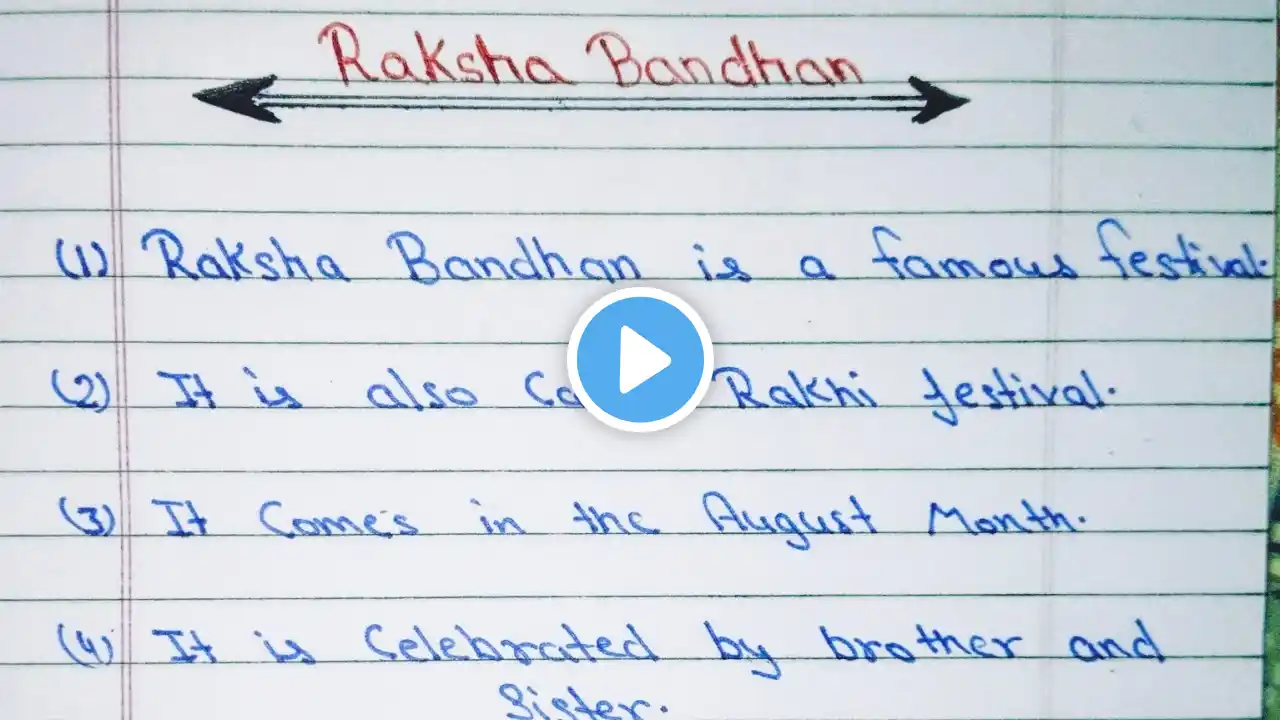 Raksha Bandhan
(1) Raksha Bandhan is a famous festival.
(2) It is also Rakhi festival.
(3) It Comes in the August Month.
(4) It is Celebrated by brother and
Sister.